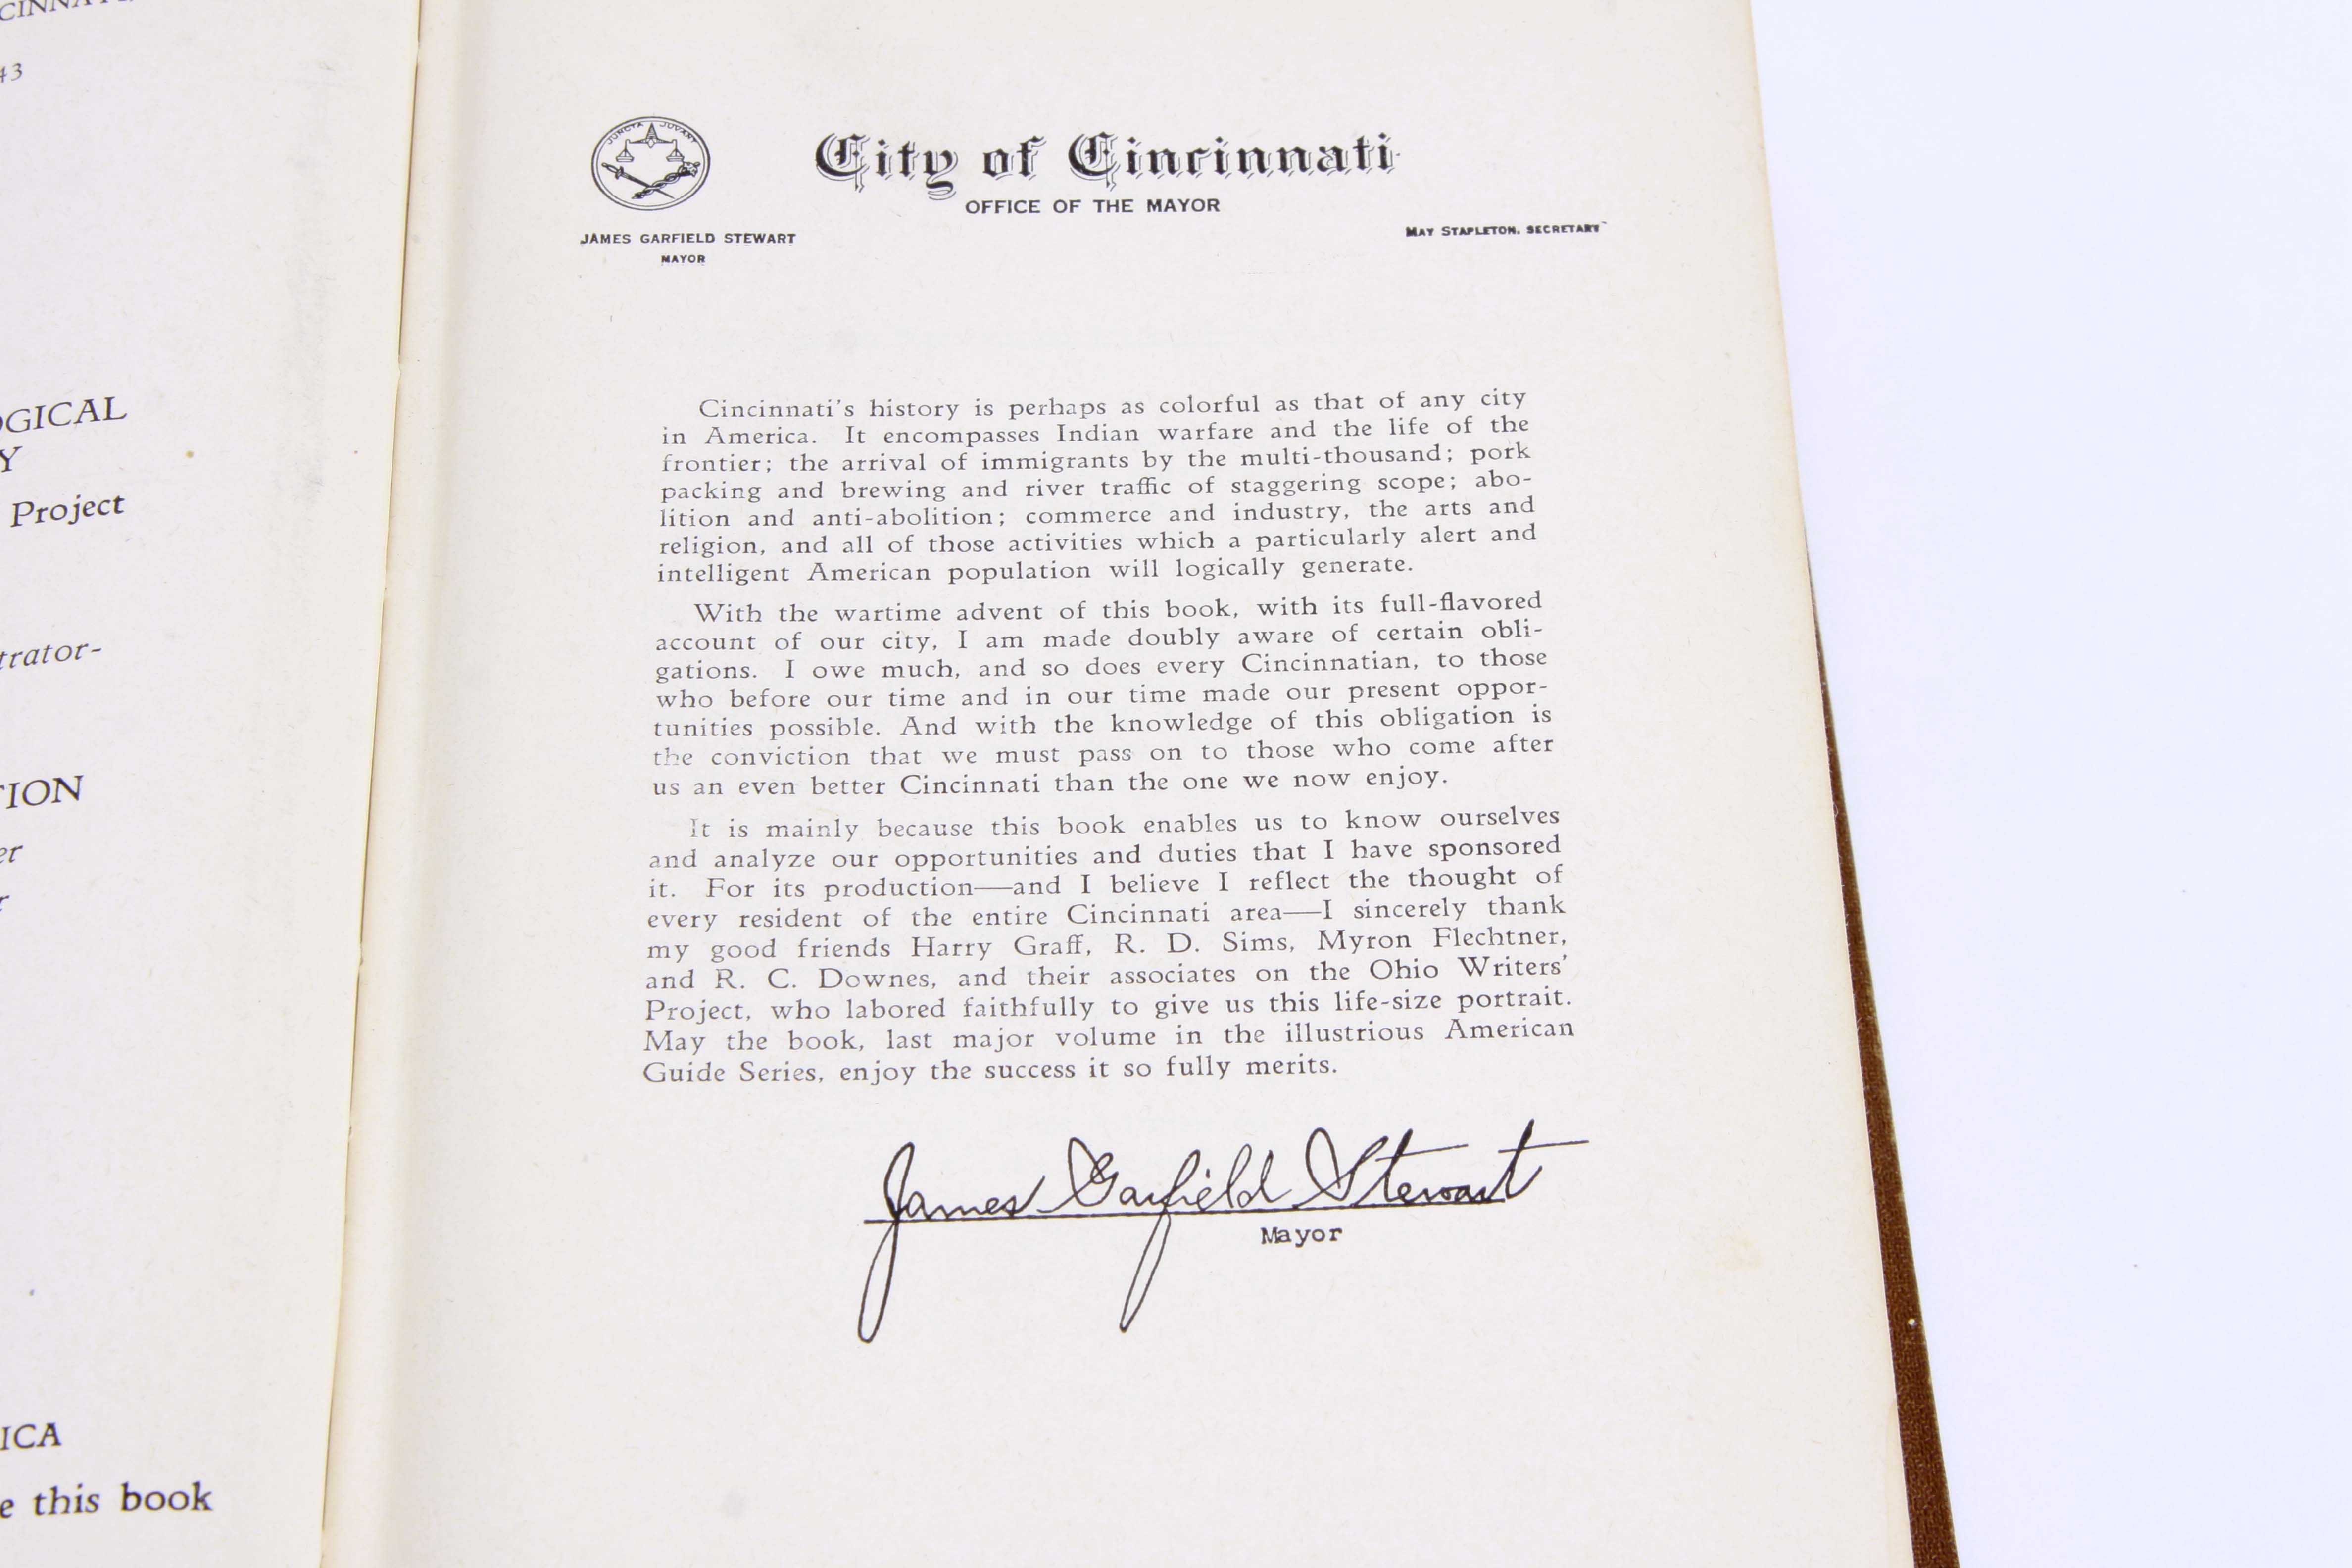 43
OGICAL
Y
Project
trator-
TION
er
r
ICA
e this book
JUNCTA JUVANT
City of Cincinnati
OFFICE OF THE MAYOR
JAMES GARFIELD STEWART
MAYOR
MAY STAPLETON, SECRETARY
Cincinnati's history is perhaps as colorful as that of any city
in America. It encompasses Indian warfare and the life of the
frontier; the arrival of immigrants by the multi-thousand; pork
packing and brewing and river traffic of staggering scope; abo-
lition and anti-abolition; commerce and industry, the arts and
religion, and all of those activities which a particularly alert and
intelligent American population will logically generate.
With the wartime advent of this book, with its full-flavored
account of our city, I am made doubly aware of certain obli-
gations. I owe much, and so does every Cincinnatian, to those
who before our time and in our time made our present oppor-
tunities possible. And with the knowledge of this obligation is
the conviction that we must pass on to those who come after
us an even better Cincinnati than the one we now enjoy.
It is mainly because this book enables us to know ourselves
and analyze our opportunities and duties that I have sponsored
it. For its production—and I believe I reflect the thought of
every resident of the entire Cincinnati area—I sincerely thank
my good friends Harry Graff, R. D. Sims, Myron Flechtner,
and R. C. Downes, and their associates on the Ohio Writers'
Project, who labored faithfully to give us this life-size portrait.
May the book, last major volume in the illustrious American
Guide Series, enjoy the success it so fully merits.
James Garfield Stewart
Mayor